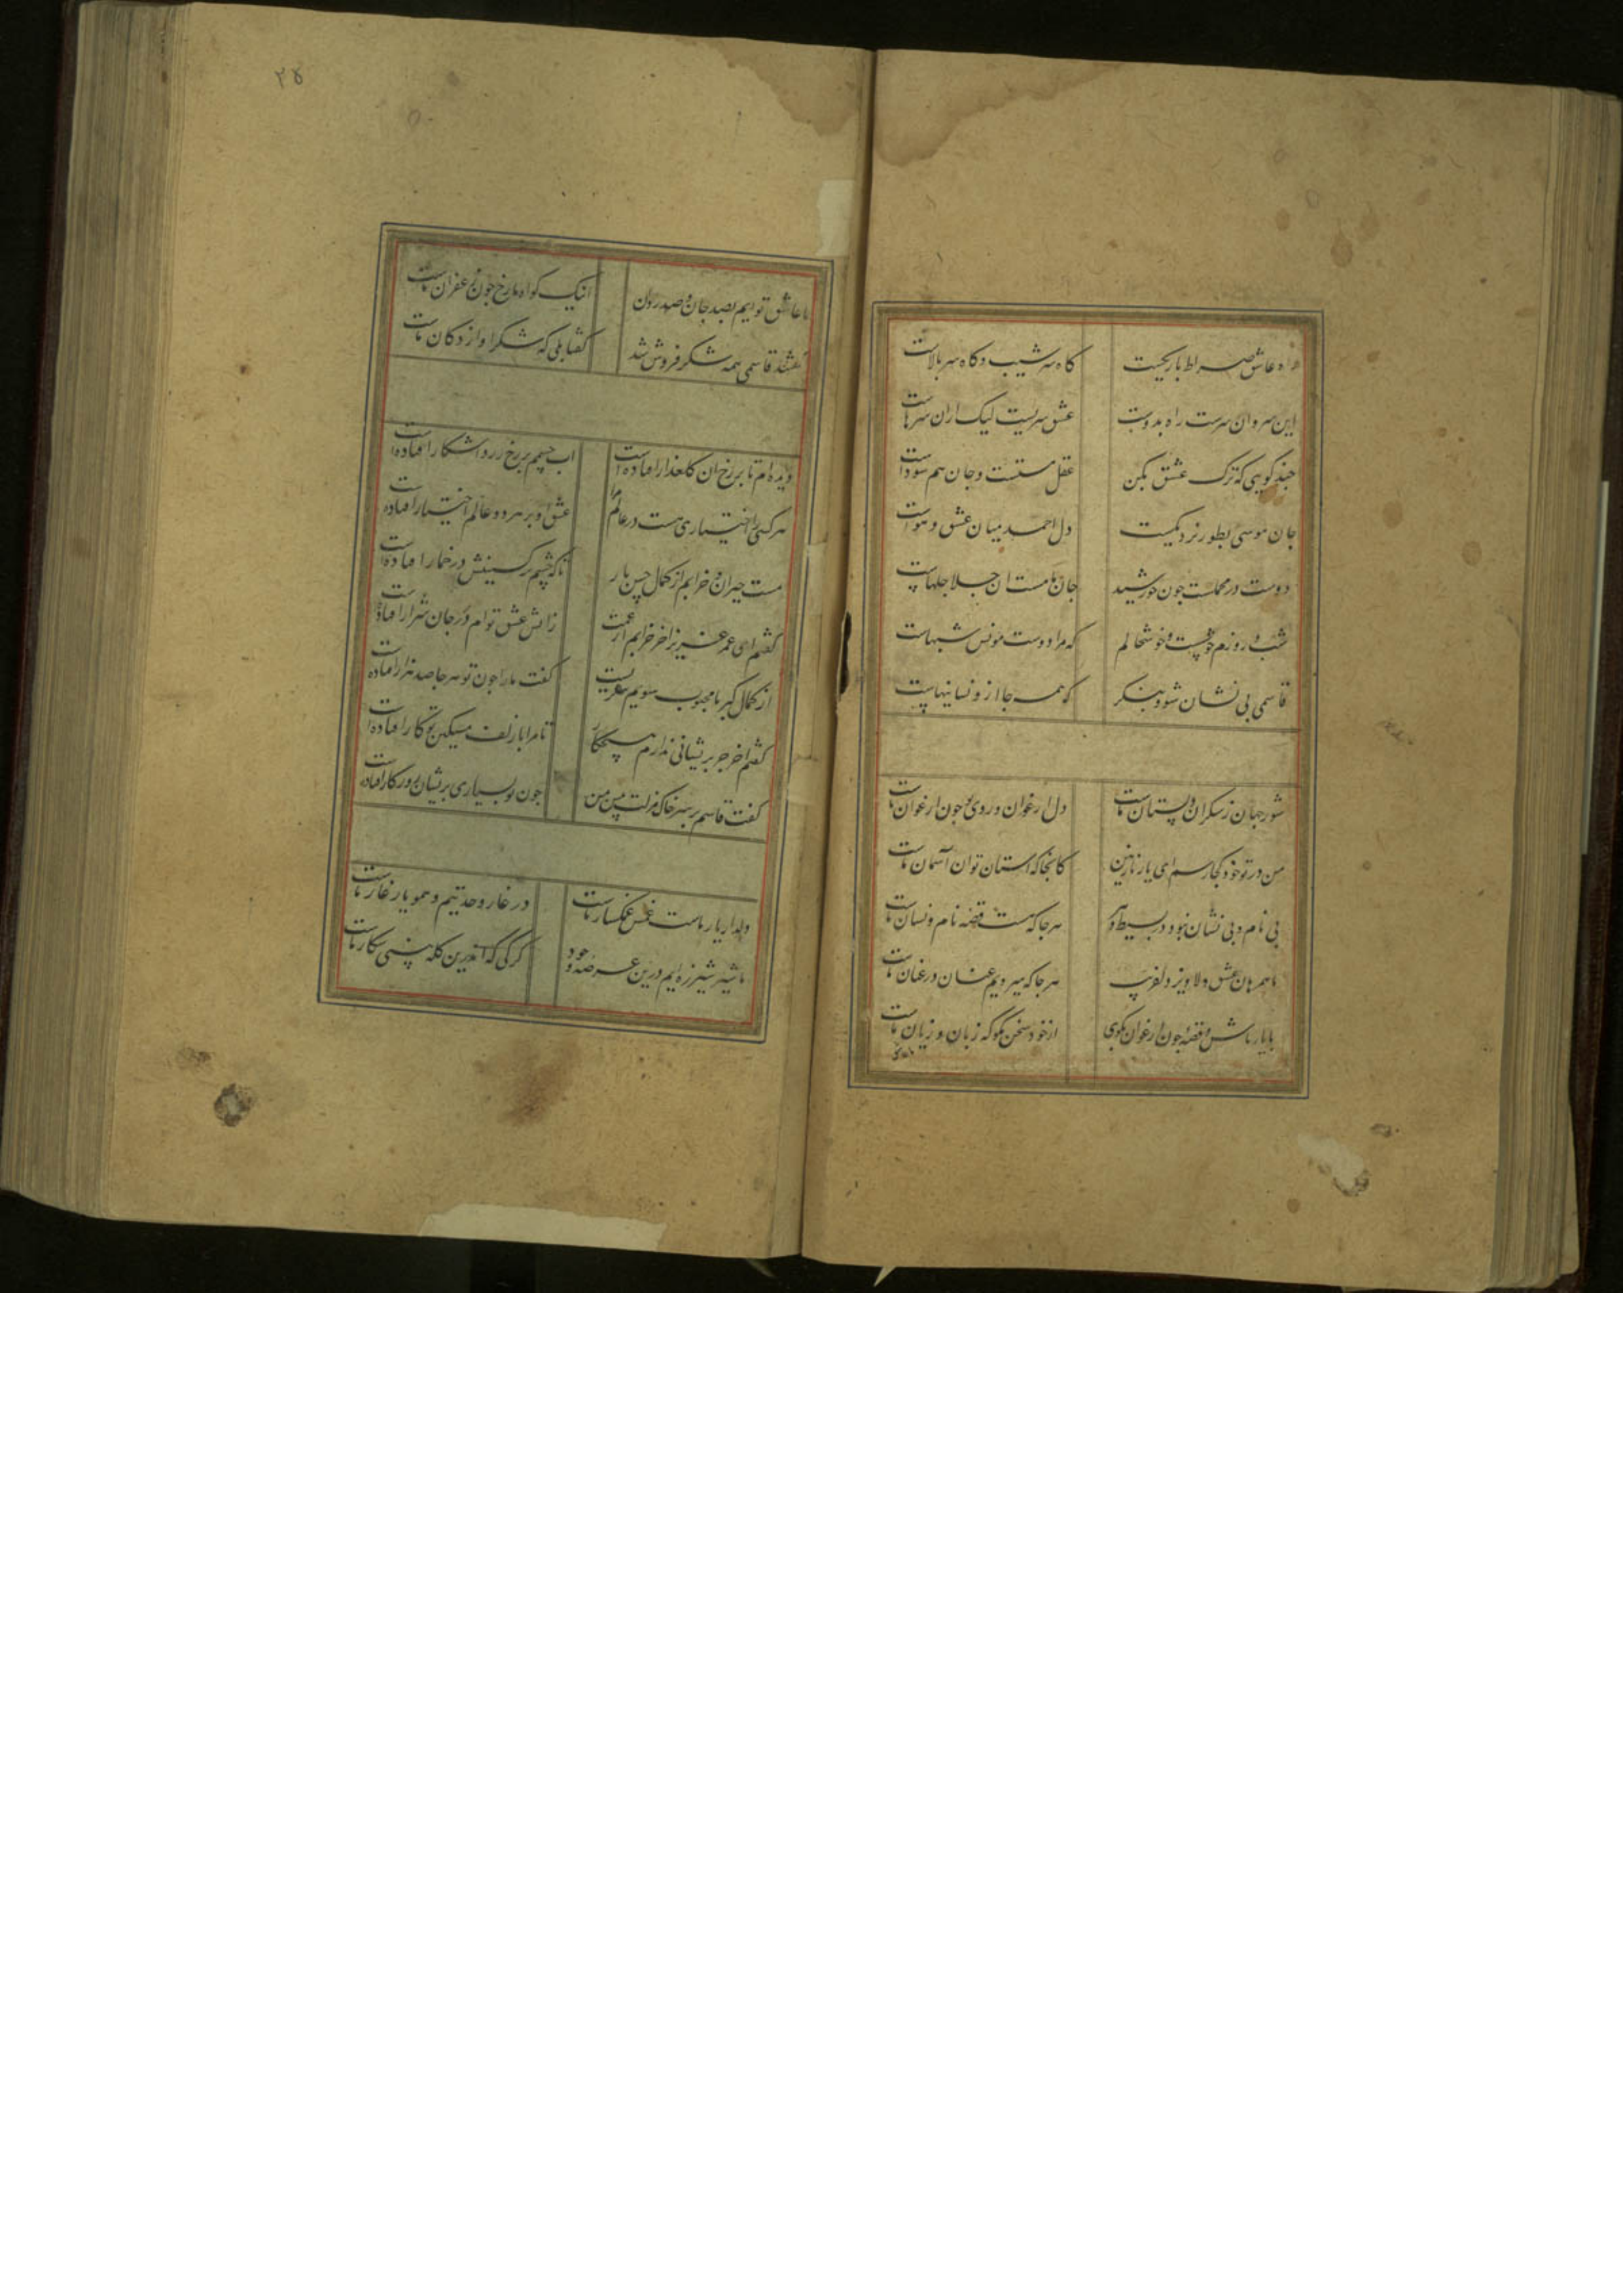 راه عاشق صراط باریکیست کاه سر شیب و کاه سر بالاست
این سر و ان سرست راه بدوست عشق سریست لیک ازان سرهاست
جند کویی که ترک عشق بکن عقل مستست و جان هم سوداست
جان موسی بطور نزدیکیست دل احمد میان عشق و هواست
دوست در مجلست جون خورشید جان ما مست ان جلاجلهاست
شب و روزم خوشست و خوشحالم که مرا دوست مونس شبهاست
قاسمی بی نشان شو و بنکر که همه جا ازو نشانیهاست
شور جهان ز شکران و بستان ماست دل ارغوان و روی تو جون ارغوان ماست
من در تو خود کجا رسم ای یار نازنین کانجا که استان توان آسمان ماست
بی نام و بی نشان نبود در بسیط دهر هر جا که هست قصه نام و نشان ماست
ما همرهان عشق دلاویز دلفریب هر جا که میرویم عنان در عنان ماست
با یار باش و قصه جون ارغوان مکوی از خود سخن مکو که زبان و زیان ماست
۳۵
ما عاشق توایم بصد جان و صد روان اینک کواه ما رخ جون زعفران ماست
کفتند قاسمی همه شکر فروش شد کفتا بلی که شکر او از دکان ماست
دیده ام تا بر رخ ان کلعذار افتاده است اب جشمم بر رخ زرد اشکار افتاده است
هر کسی را اختیاری هست در عالم عشق او بر هر دو عالم اختیار افتاده است
مست و حیران و خرابم از کمال حسن یار تا که جشم نرکسینش در خمار افتاده است
کفتم ای عمر عزیز اخر خرابم از غمت زاتش عشق توام در جان شرار افتاده است
از کمال کبر با محبوب سویم بنکریست کفت ما را جون تو هر جا صد هزار افتاده است
کفتم اخر جز بریشانی ندارم هیچ کار تا مرا با زلف مسکین تو کار افتاده است
کفت قاسم بر سر خاک مذلت بیش من جون تو بسیاری بریشان روزکار افتاده
دلدار یار ماست غمش غمکسار ماست در غار وحدتیم و همو یار غار ماست
ما شیر شرزه ایم درین عرصه وجود کرکی که اندرین کله بینی شکار ماست